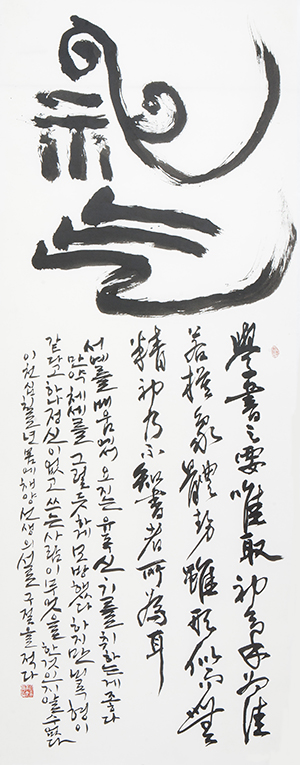 學書之要唯取神氣為佳
若模象體勢雖形似而無
精神乃不知書者所為耳
서예를 배움에서 오직은 유독 신기를 취하는게 좋다
만약 체세를 그럴듯하게 모방했다 하지만 비록 형이
같다고 하나 정신이 없고 쓰는 사람이 무엇을 한것인지 알수 없다
이천십칠년 봄에 채양선생의 서론 구절을 적다